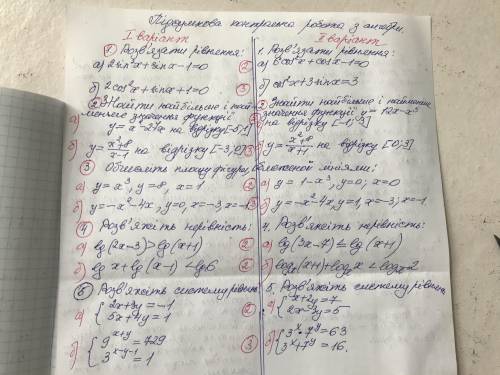 Підсумкова контрольна робота з алгебри
І варіант
① Розв'язати рівняння:
а) 2sin²x+sinx-1=0
б) 2cos²x+sinx+1=0
② Знайти найбільше і най-
менше значення функції
а) y=x³-27x на відрізку[-5;1]
б) y=x²+8/x-1 на відрізку [-3;0]
③ Обчисліть площу фігури, обмеженої лініями:
а) y=x³, y=8, x=1
б) y=-x²-4x, y=0, x=-3, x=-1
④ Розв'яжіть нерівність:
а) lg(2x-3)>lg(x+1)
б) lgx+lg(x-1)<lg6
⑤ Розв'яжіть систему рівнянь
а) {2x+3y=-1
5x+4y=1
б) {9^x+y=729
3^x-y-1=1
ІІ варіант
1. Розв'язати рівняння:
② а) cos²x+cosx-1=0
③ б) cos²x+3sinx=3
2. Знайти найбільше і найменше
значення функції y=12x-x³
на відрізку [-1;3]
③ б) y=x²+8/x+1 на відрізку [0;3]
② а) y=1-x³, y=0; x=0
③ б) y=-x²-4x, y=1, x=-3; x=-1
4. Розв'яжіть нерівність:
② а) lg(3x-7)≤lg(x+1)
② б) log₂(x+1)+log₂x<log₂2
5. Розв'яжіть систему рівнянь
② а) {x+2y=7
2x-3y=5
③ б) {3^x·7^y=63
3^x+7^y=16.